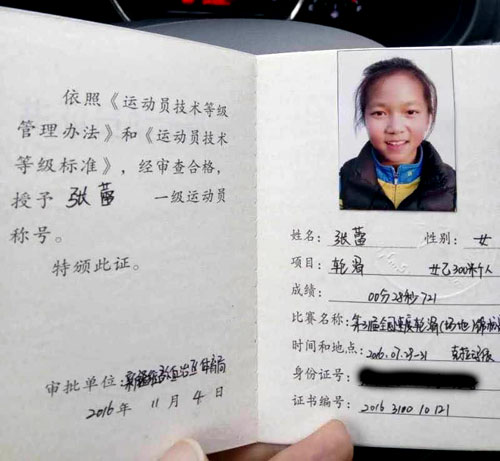 依照《运动员技术等级
管理办法》和《运动员技术
等级标准》，经审查合格，
授予 张蕾 一级运动员
称号。
特颁此证。
审批单位：新疆维吾尔自治区体育局
2016 年 11 月 4 日
姓名： 张蕾 性别： 女
项目： 轮滑 女乙300米个人
成绩： 00分28秒721
比赛名称：第31届全国速度轮滑(场地)锦标
时间和地点：2016.07.29-31
身份证号：
证书编号： 2016 3100 10 121